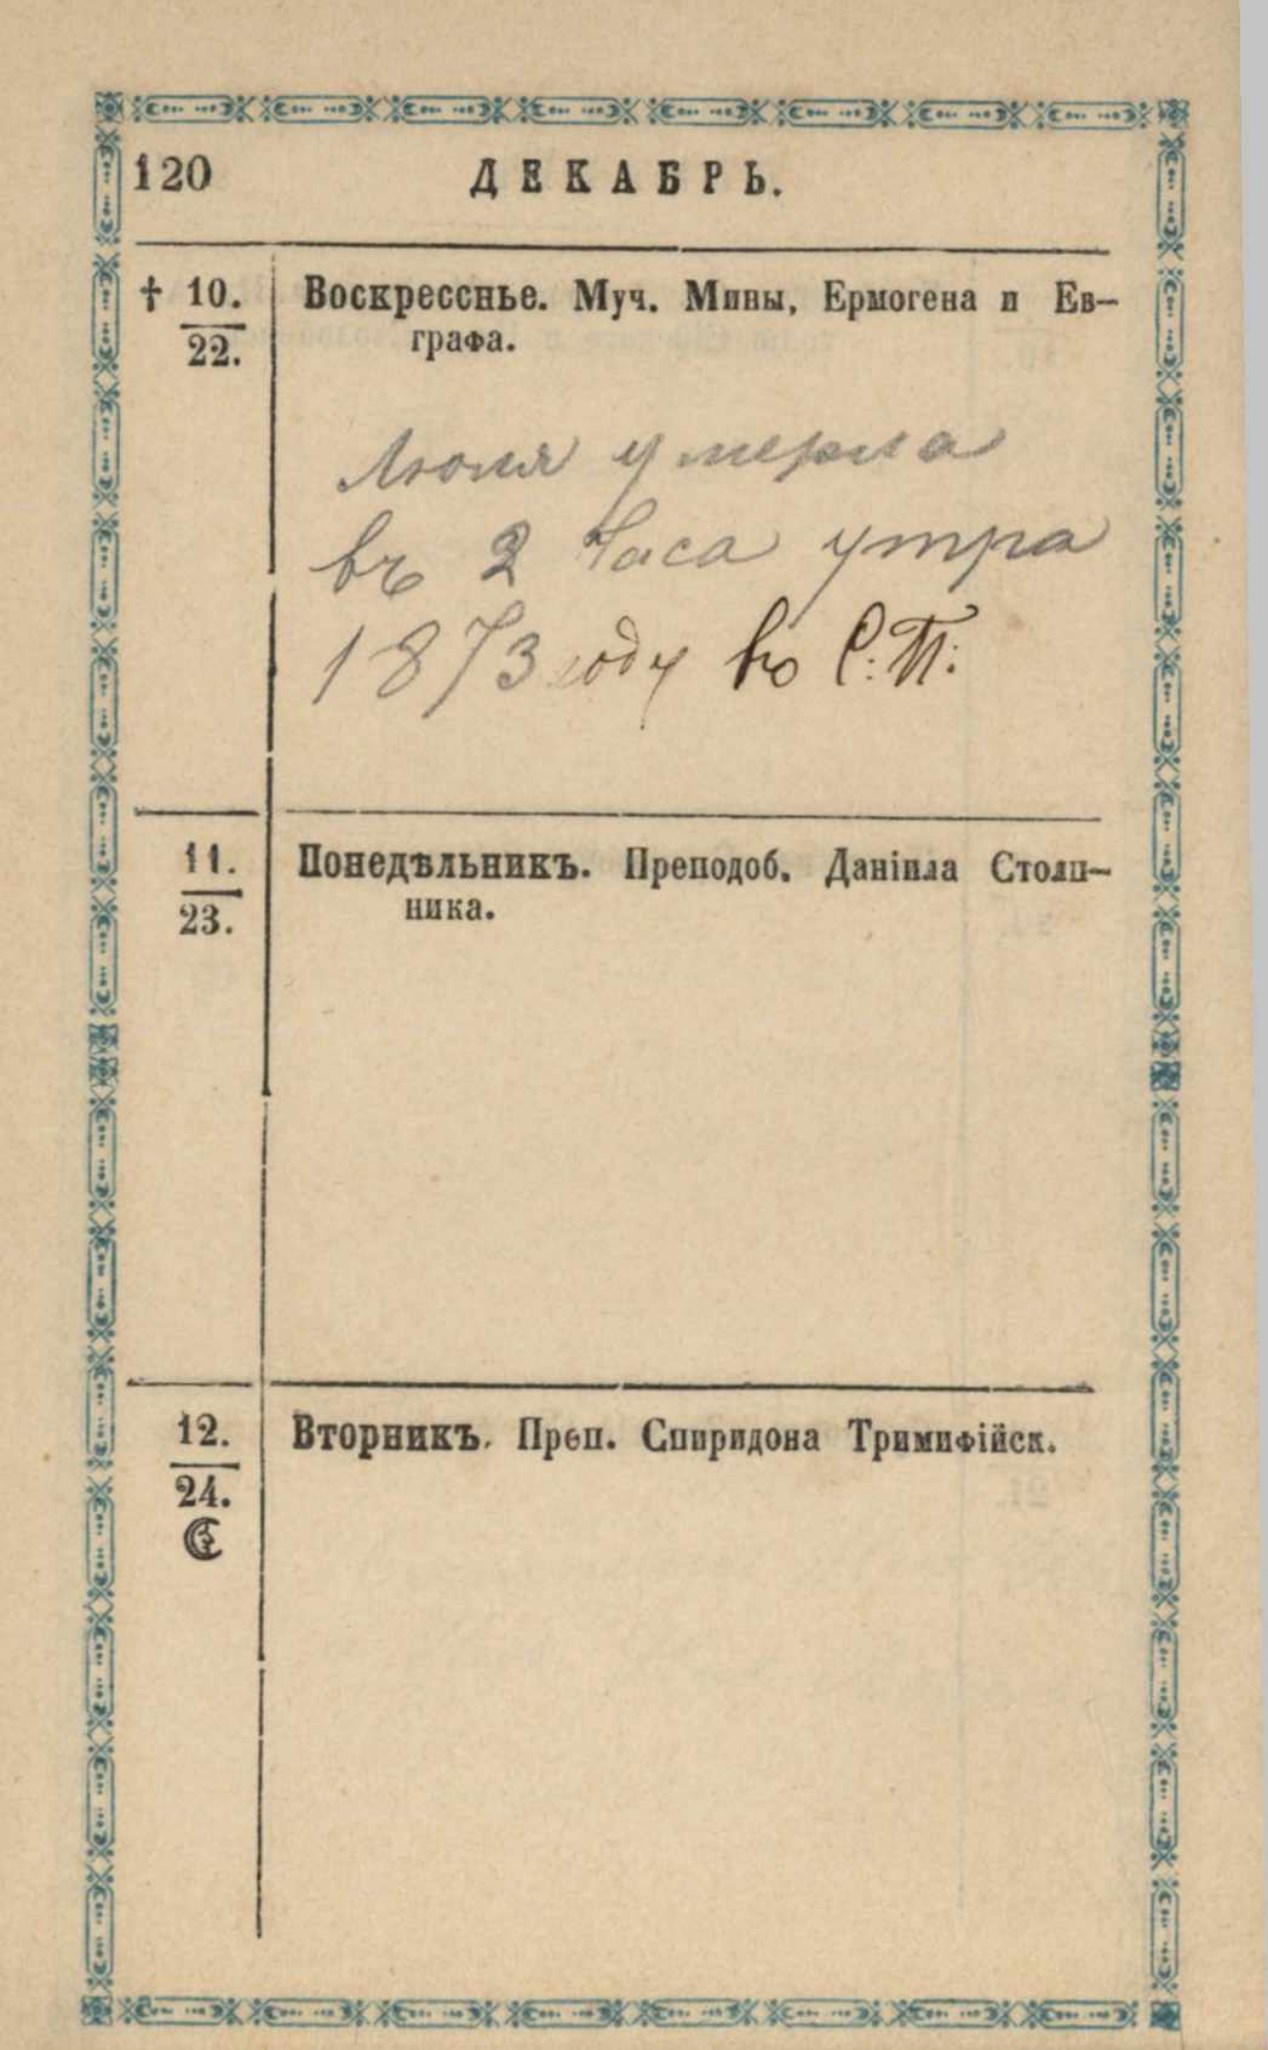 120 ДЕКАБРЬ.
† 10. Воскресснье. Муч. Мины, Ермогена и Ев-
22. графа.
Люля умерла
въ 2 часа утра
1873 году въ С.П.
11. Понедѣльникъ. Преподоб. Даніила Столп-
23. ника.
12. Вторникъ. Преп. Спиридона Тримифійск.
24.